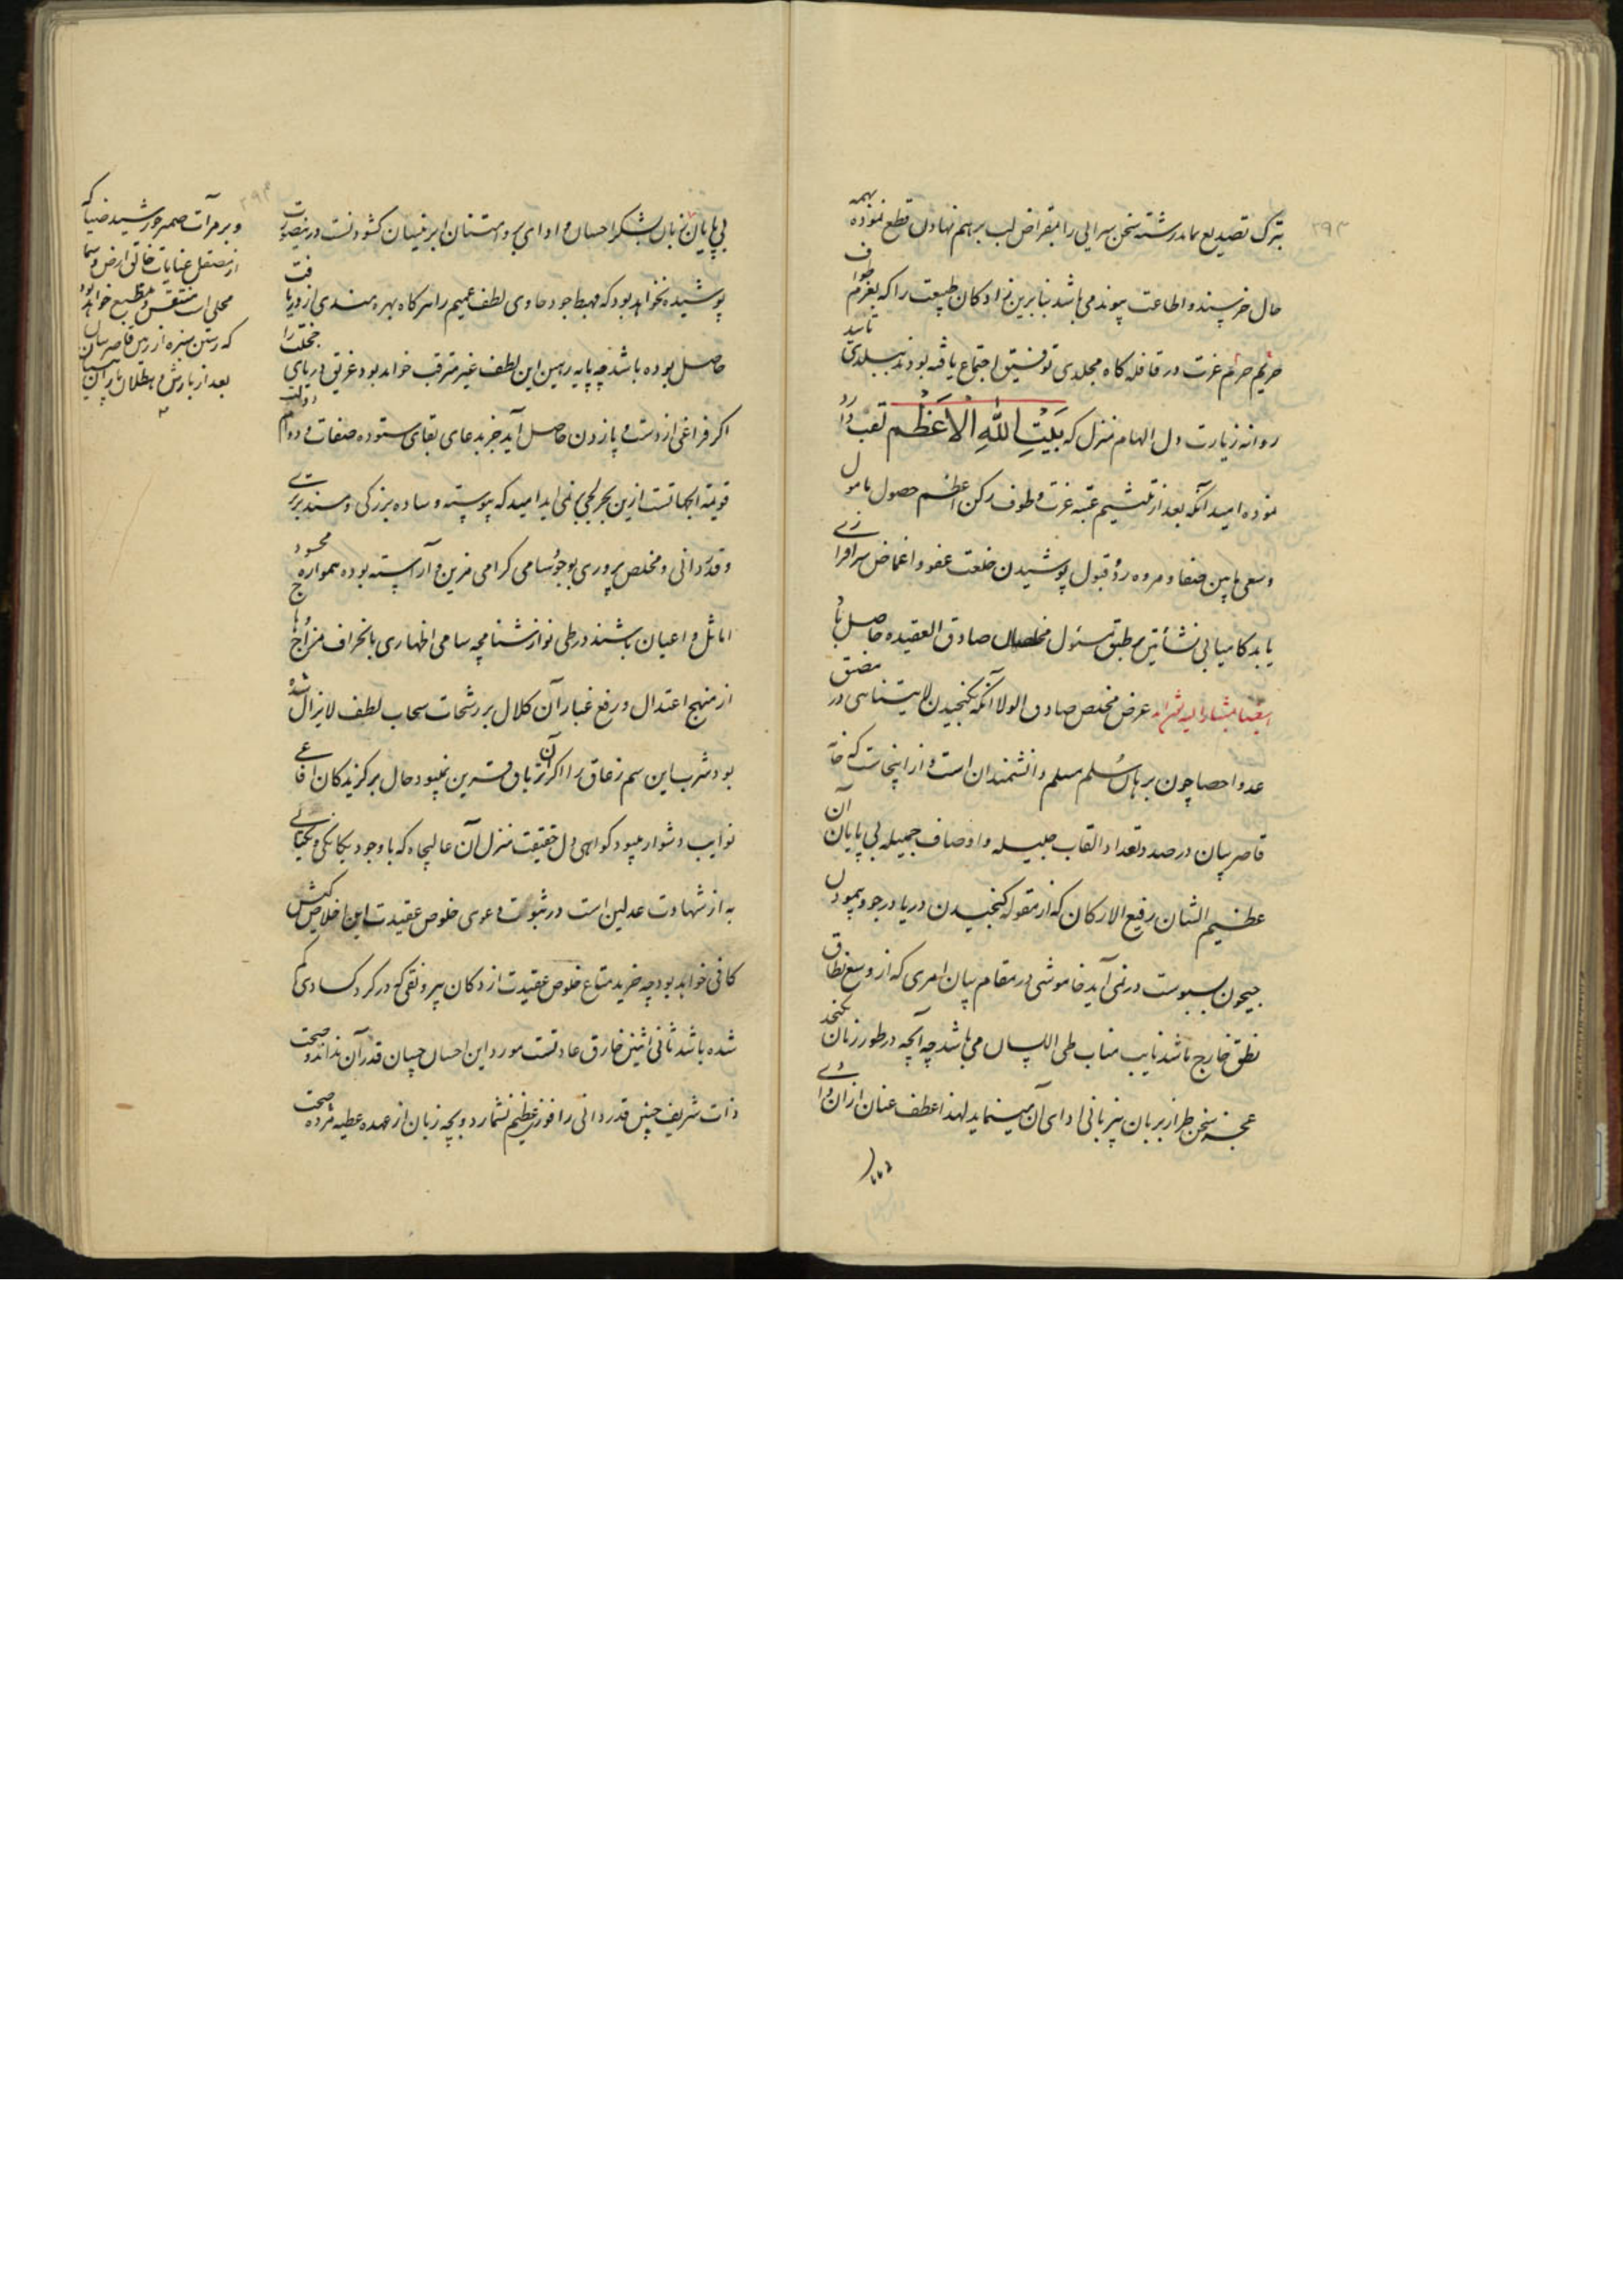 ۲۹۳
بترک تصدیع نماند رشته سخن سرایی را بمقراض لب برهم نهادن قطع نموده بهمه
حال خرسند و اطاعت پیوند می باشد بنا برین نزادکان طبیعت را که بعزم طواف
حریم حرم عزت در قافله کاه مجلدی توفیق اجتماع یافته بودند ببلدی تایید
روانه زیارت دل الهام منزل که بَیْتِ اللّٰهِ الْاَعْظَم لقب دارد
نموده امید آنکه بعد از تلثیم عتبه عزت و طوف رکن اعظم حصول مامول
و سعی مابین صفا و مروه رد و قبول پوشیدن خلعت عفو و اغماض سرافرازی
یابد کامیابی نشأتین بر طبق مسئول مخلصان صادق العقیده حاصل باد
ایضا بمشار الیه نوشته عرض مخلص صادق الولا آنکه نکنجیدن لایتناهی در مضیق
عد و احصا چون برهان سلم مسلم دانشمندان است و از اینجاست که خامه
قاصر بیان در صدد تعداد القاب جلیله و اوصاف جمیله بی پایان آن
عظیم الشان رفیع الارکان که از مقوله کنجیدن دریا در جو و پیمودن
جیحون بسبوست در نمی آید خاموشی در مقام بیان امری که از وسع نطاق
نطق خارج باشد نایب مناب طی اللسان می باشد چه آنچه در طور زبان نکنجد
عجز سخن طراز بزبان بیزبانی ادای آن مینماید لهذا عطف عنان از آن وادی
۲۹۴
بی پایان زبان بشکر احسان و ادای بر و امتنان ابر نیسان کشودنست درینصورت
پوشیده نخواهد بود که مهبط جود حاوی لطف عمیم را هر کاه بهره مندی از دریافت
حاصل بوده باشد چه پایه رهین این لطف غیر مترقب خواهد بود غریق دریای خجلت را
اکر فراغی از دست و پا زدن حاصل آید جز بدعای بقای ستوده صفات و دوام دولت
قویة الجهات از این بحر لجی بر نمی اید امید که پیوسته وساده بزرکی و مسند برتری
و قدردانی و مخلص پروری بوجود سامی کرامی مزین و آراسته بوده همواره محسود
اماثل و اعیان باشند در طی نوازشنامچه سامی اظهاری بانحراف مزاج
از منهج اعتدال و رفع غبار آن کلال بر رشحات سحاب لطف لایزال شده
بود شرب این سم زعاق را اکر آن تریاق قرین نمیبود حال برکزیدکان افاعی
نوایب دشوار میبود کواهی دل حقیقت منزل آن عالیجاه که با وجود یکانکی و یکتایی
به از شهادت عدلین است در ثبوت دعوی خلوص عقیدت این اخلاص کیش
کافی خواهد بود چه خرید متاع خلوص عقیدت از دکان بیرونقی که در کرد کسادی کم
شده باشد ثانی اثنین خارق عادتست مورد این احسان چسان قدر آن نداند و صحت
ذات شریف چنین قدردانی را فوز عظیم نشمارد و بچه زبان از عهده عطیه مژده صحت
و بر مرآت ضمیر خورشید ضیا که
از مصقل عنایات خالق ارض و سما
مجلی است منتقش و منطبع خواهد بود
که رستن سبزه از زمین قاصر بیان
بعد از بارش و هطلان باران نیسان